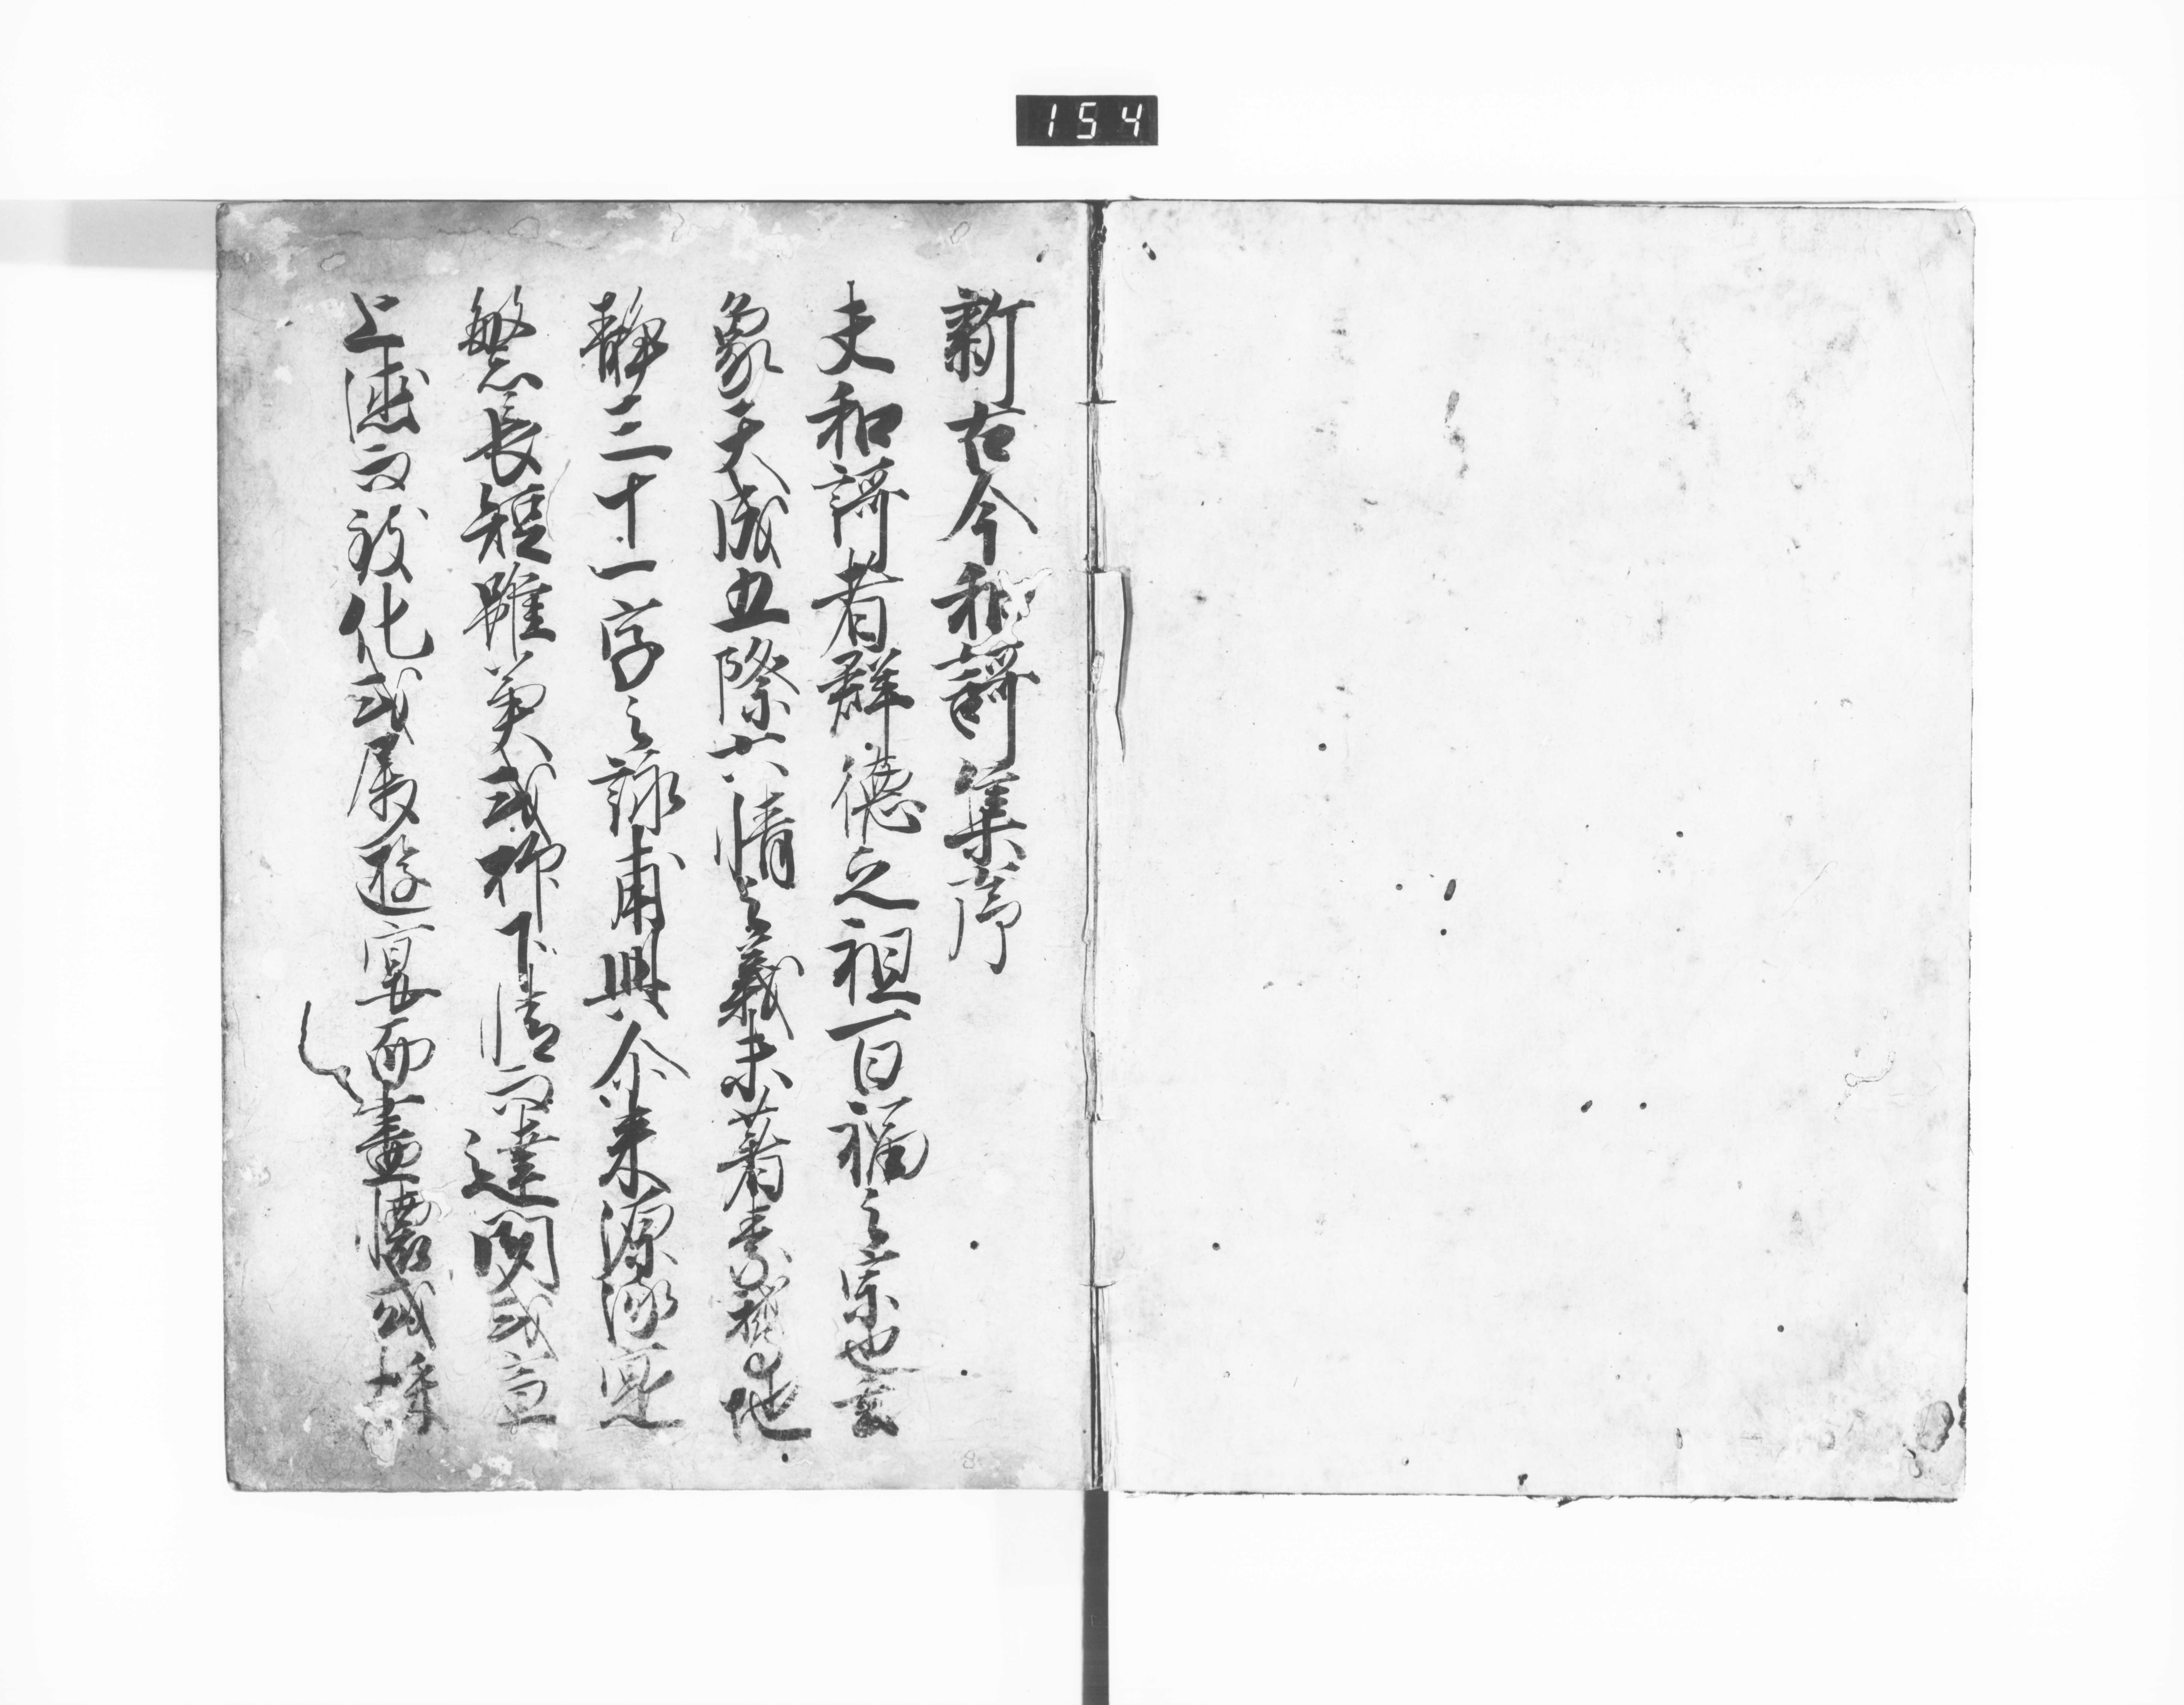 154
新古今和謌集序
夫和謌者群德之祖百福之宗也玄
象天成五際六情之義未著素鵝地
静三十一字之詠甫興尒来源流寔
繁長短雖異或抒下情而達聞或宣
上德而致化或属遊宴而書懐或採